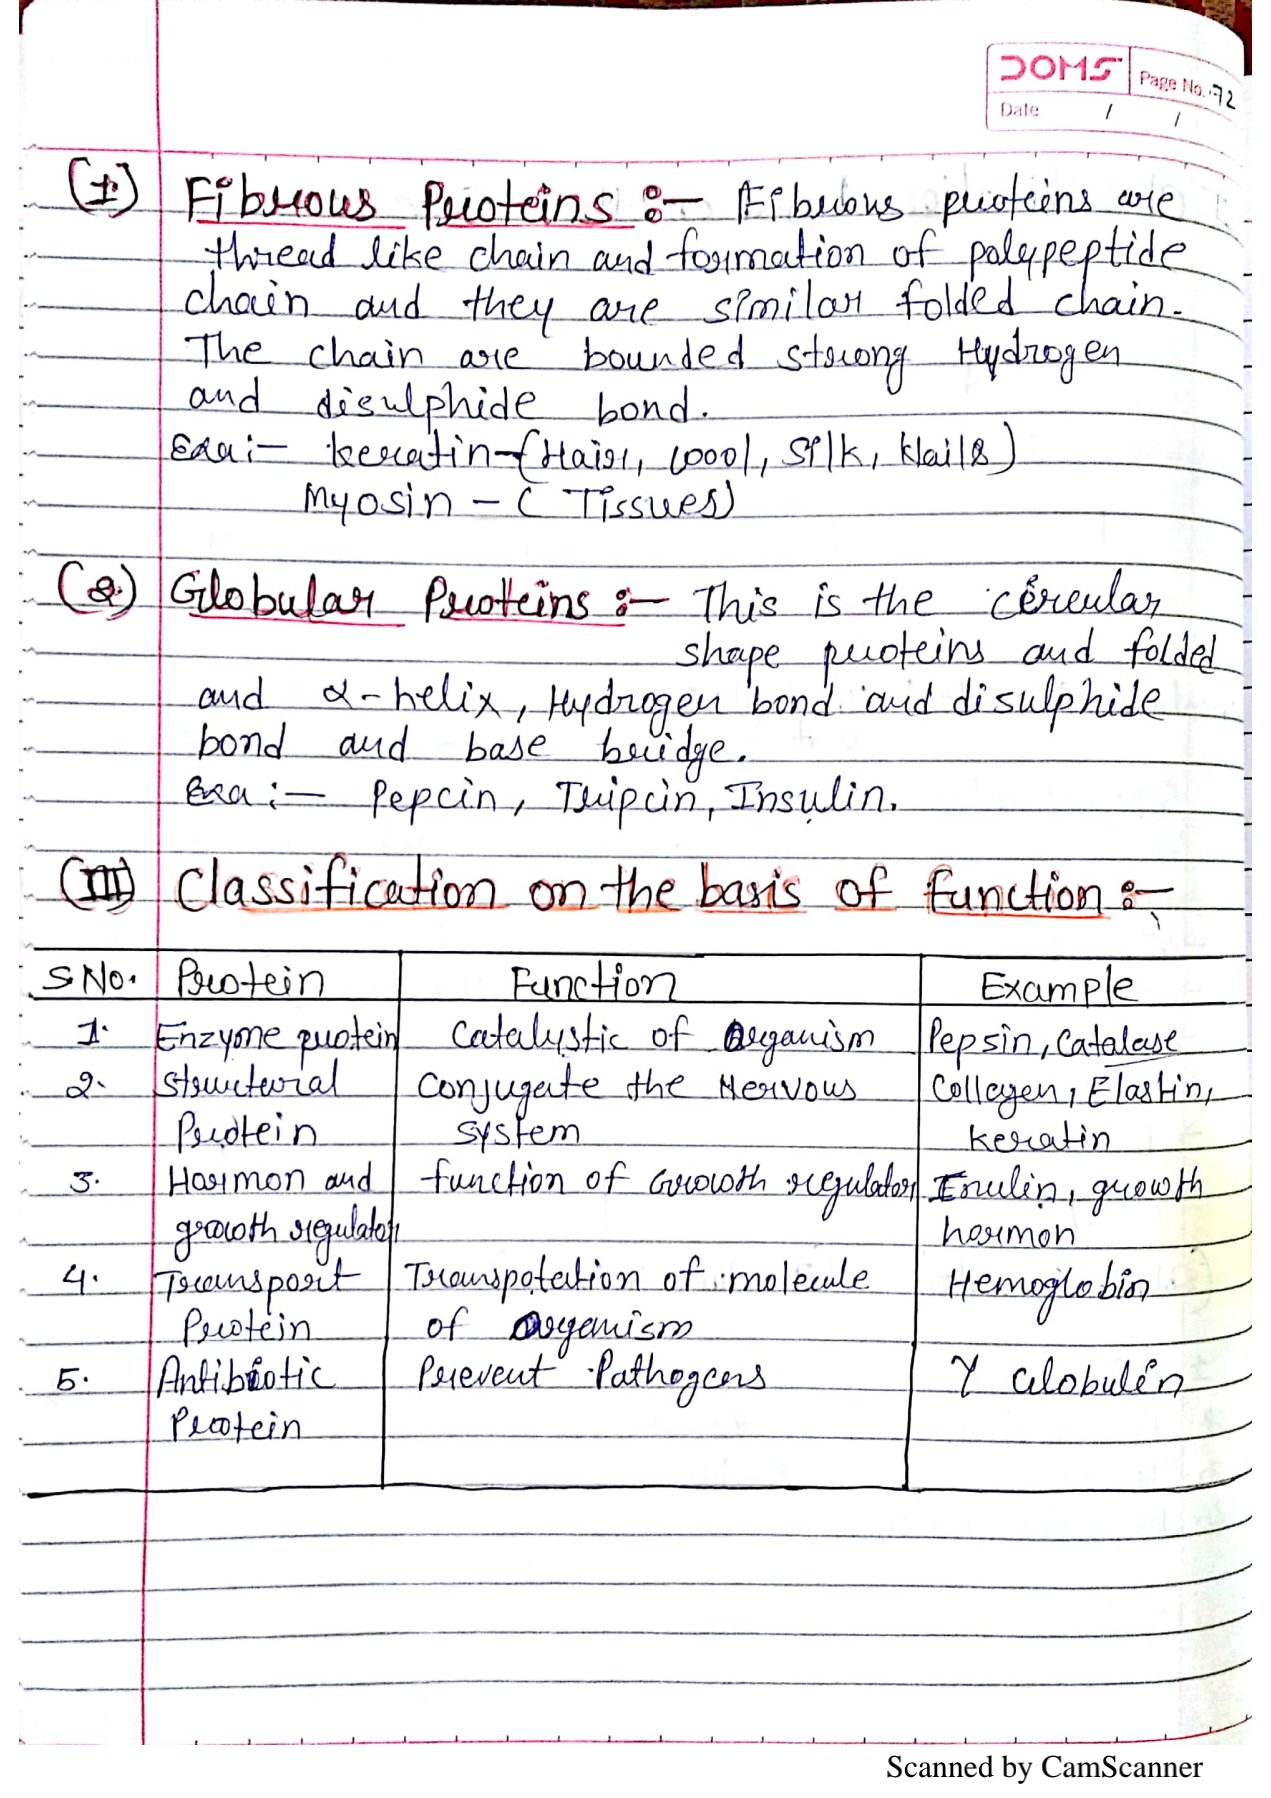 DOMS
Page No. 72
Date / /
(1) Fibrous Proteins :- Fibrous proteins are
thread like chain and formation of polypeptide
chain and they are similar folded chain.
The chain are bounded strong Hydrogen
and disulphide bond.
Exa:- keratin-(Hair, wool, silk, Nails)
Myosin - ( Tissues)
(2) Globular Proteins :- This is the circular
shape proteins and folded
and α-helix, Hydrogen bond and disulphide
bond and base bridge.
Exa :- Pepcin, Tripcin, Insulin.
(III) Classification on the basis of function :-
S No. Protein Function Example
1. Enzyme protein Catalystic of Organism Pepsin, Catalase
2. Structural Conjugate the Nervous Collegen, Elastin,
Protein system keratin
3. Harmon and function of Growth regulator Inulin, growth
growth regulator harmon
4. Transport Transpotation of molecule Hemoglobin
Protein of Organism
5. Antibiotic Prevent Pathogens γ Globulin
Protein
Scanned by CamScanner